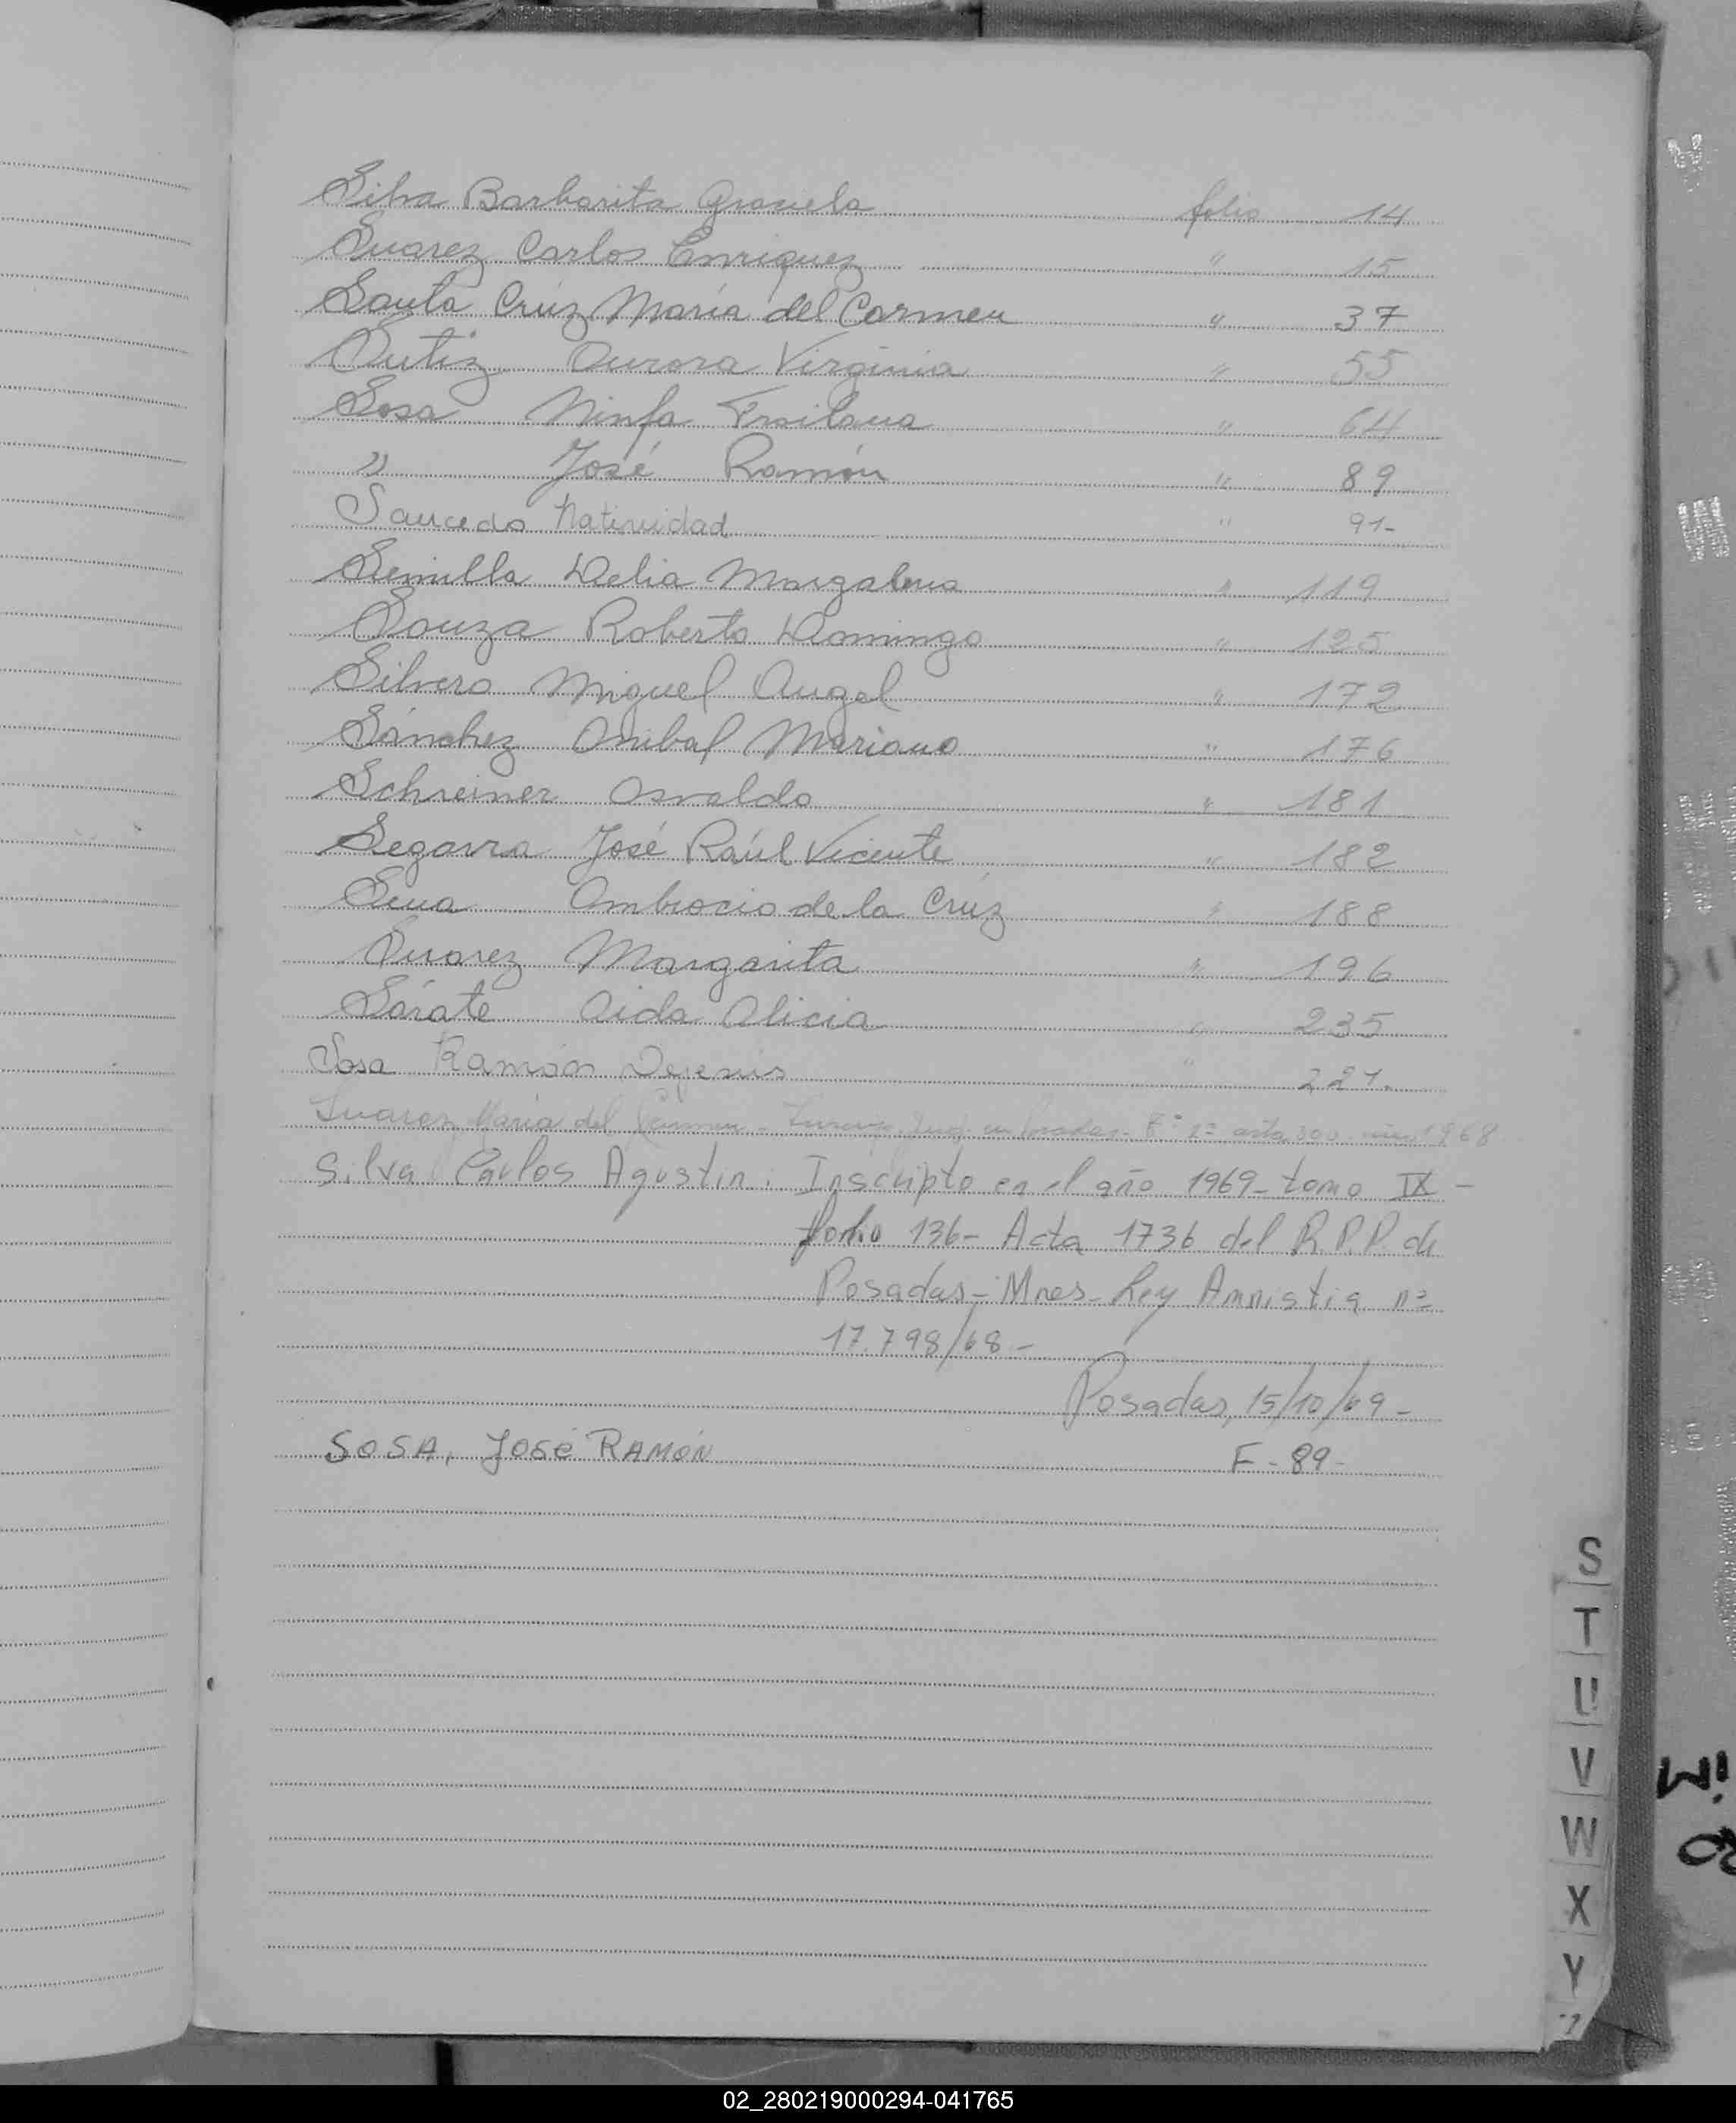 Silva Barbarita Graciela folio 14
Suarez Carlos Enriquez " 15
Santa Crúz María del Carmen " 37
Sutiz Aurora Virginia " 55
Sosa Ninfa " 64
" José Ramón " 89
Saucedo Natividad " 91-
Semilla Delia Margalena " 119
Souza Roberto Domingo " 125
Silvero Miguel Angel " 172
Sánchez Anibal Mariano " 176
Schreiner Osvaldo " 181
Segovra José Raúl Vicente " 182
Sena Ambrocio de la Crúz " 188
Suarez Margarita " 196
Sárate Aida Alicia " 235
Sosa Ramón " 221.
Suarez María del Carmen - 1968
Silva Carlos Agustin: Inscripto en el año 1969- tomo IX -
folio 136- Acta 1736 del R.P.P. de
Posadas- Mnes- Ley Amnistia nº
17.798/68-
Posadas, 15/10/69-
SOSA, JOSÉ RAMÓN F-89-
S
T
U
V
W
X
Y
02_280219000294-041765